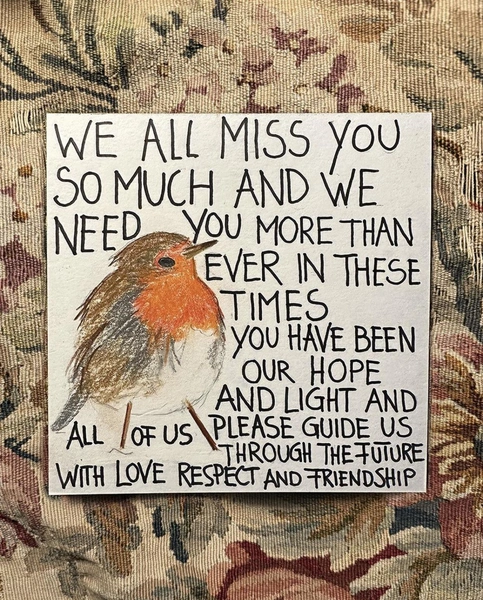 WE ALL MISS YOU
SO MUCH AND WE
NEED YOU MORE THAN
EVER IN THESE
TIMES
YOU HAVE BEEN
OUR HOPE
AND LIGHT AND
ALL OF US PLEASE GUIDE US
THROUGH THE FUTURE
WITH LOVE RESPECT AND FRIENDSHIP